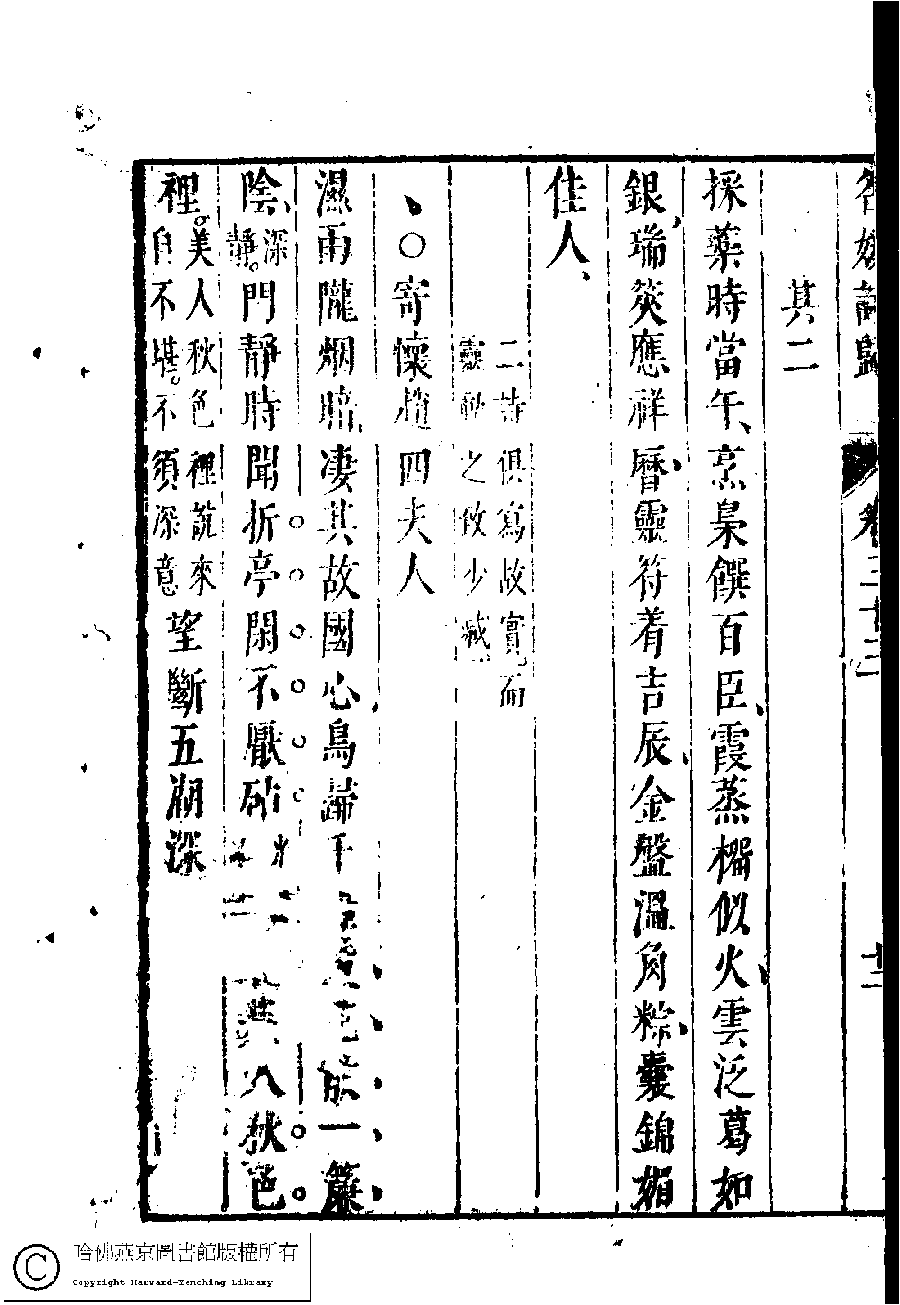 名媛詩歸 卷三十三 十二
其二
採藥時當午、烹梟饌百臣、霞蒸榴似火、雲泛葛如
銀、瑞筴應祥曆、靈符着吉辰、金盤溫角粽、囊錦媚
佳人、
二詩俱寫故實而
靈秘之致少減
、○寄懷趙四夫人
濕雨隴烟暗、凄其故國心、鳥歸千 一簾
陰、深
靜。門靜時聞折亭閑不厭砧 人秋色
裡。美人秋色裡說來
自不堪。不須深意望斷五湖深
哈佛燕京圖書館版權所有
Copyright Harvard-Yenching Library